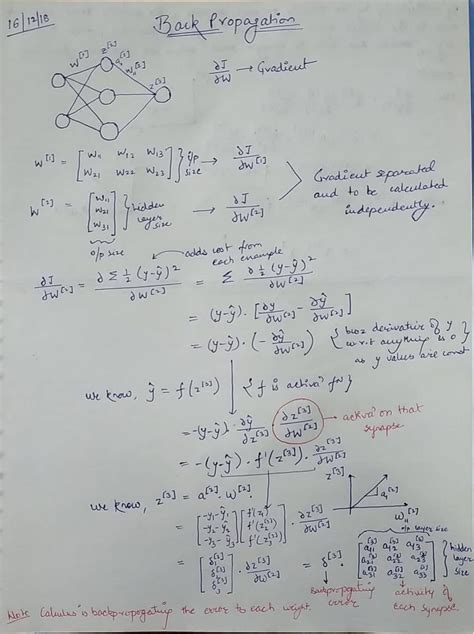 16/12/18
Back Propagation
W[1] z[2] a1[2] W11[2] z[3]
∂J/∂W → Gradient
W[1] = [w11 w12 w13; w21 w22 w23] } i/p size → ∂J/∂W[1]
W[2] = [w11; w21; w31] } hidden layer size → ∂J/∂W[2]
o/p size
Gradient separated
and to be calculated
independently.
adds cost from
each example
∂J/∂W[2] = ∂ Σ ½ (y-ŷ)² / ∂W[2] = Σ ∂ ½ (y-ŷ)² / ∂W[2]
= (y-ŷ) · [∂y/∂W[2] - ∂ŷ/∂W[2]]
= (y-ŷ) · (-∂ŷ/∂W[2])
{ bcoz derivative of y
w.r.t anything is 0 }
as y values are const
we know, ŷ = f(z[3]) { f is activaⁿ fⁿ }
= -(y-ŷ) · ∂ŷ/∂z[3] · ∂z[3]/∂W[2] → activaⁿ on that
synapse.
= -(y-ŷ) · f'(z[3]) · ∂z[3]/∂W[2]
we know, z[3] = a[2] · w[2].
z[3] a1[2] W11[2]
= [-y1-ŷ1; -y2-ŷ2; -y3-ŷ3] [f'(z1[3]); f'(z2[3]); f'(z3[3])] · ∂z[3]/∂W[2]
o/p layer size
= [δ1[3]; δ2[3]; δ3[3]] · ∂z[3]/∂W[2] = δ[3] · [a11[2] a12[2] a13[2]; a21[2] a22[2] a23[2]; a31[2] a32[2] a33[2]] } hidden layer size
Backpropagating
error
activity of
each synapse
Note Calculus is backpropagating the error to each weight.